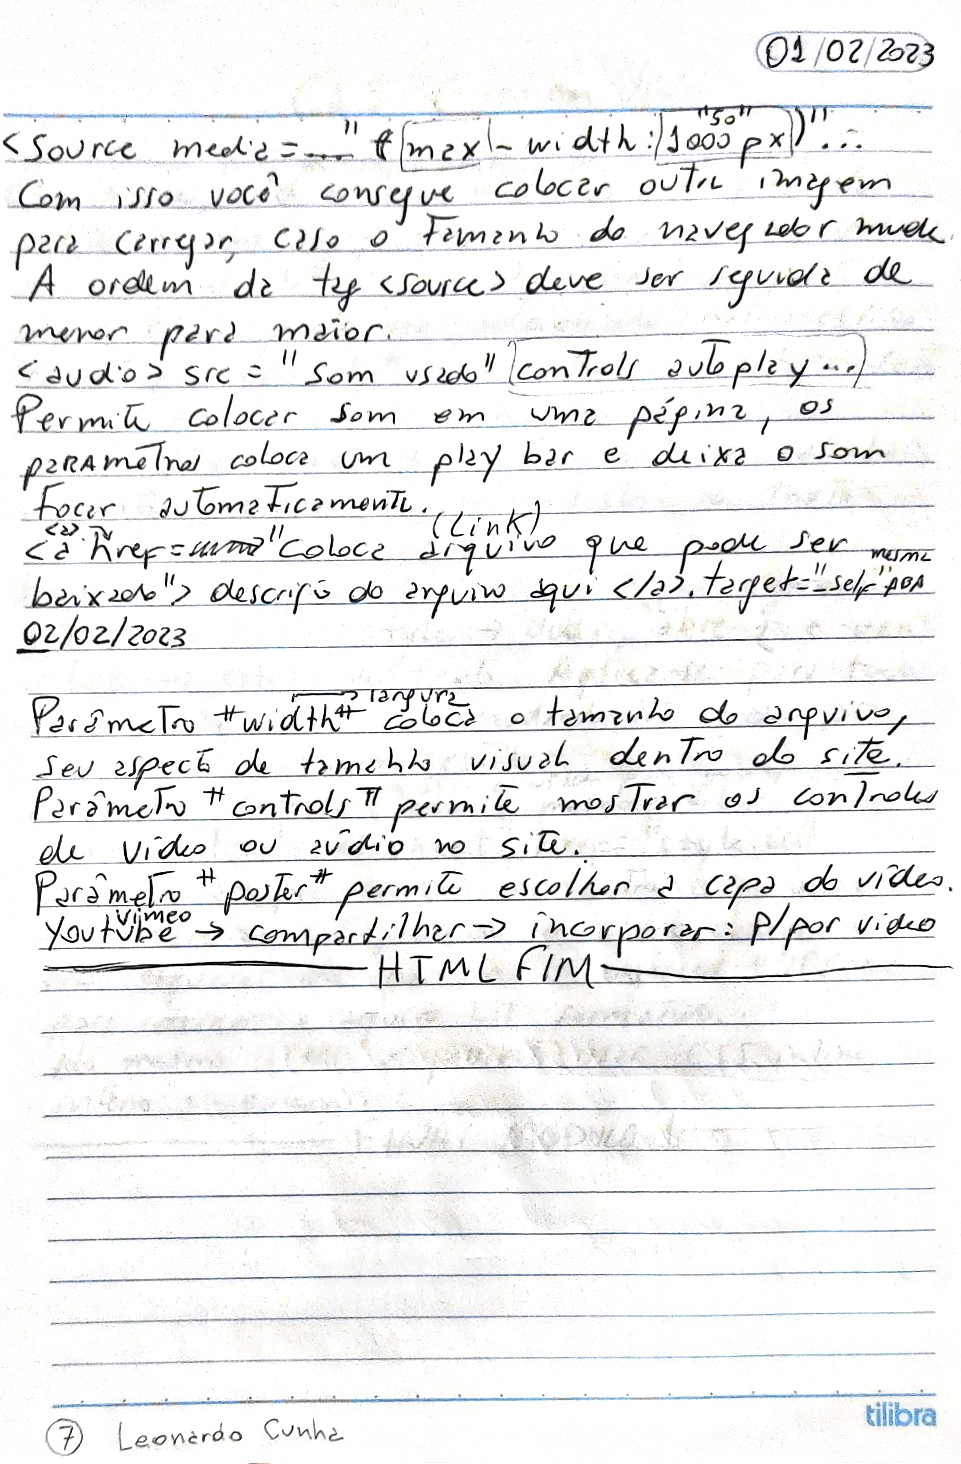 01/02/2023
"50"
<source media=.... "([max]-width:[1000px])"...
Com isso você consegue colocar outra imagem
para carregar, caso o tamanho do navegador mude.
A ordem da tag <source> deve ser seguida de
menor para maior.
<audio> src = "som usado" [controls autoplay...]
Permite colocar som em uma página, os
parâmetros coloca um play bar e deixa o som
tocar automaticamente.
<a> (Link)
<a href= "coloca arquivo que pode ser mesma
baixado"> descrição do arquivo aqui </a>. target="_self" ABA
02/02/2023
→ largura
Parâmetro #width# coloca o tamanho do arquivo,
seu aspecto de tamanho visual dentro do site.
Parâmetro #controls# permite mostrar os controles
de vídeo ou aúdio no site.
Parâmetro #poster# permite escolher a capa do vídeo.
vimeo
Youtube → compartilhar → incorporar: p/por video
HTML FIM
tilibra
7 Leonardo Cunha